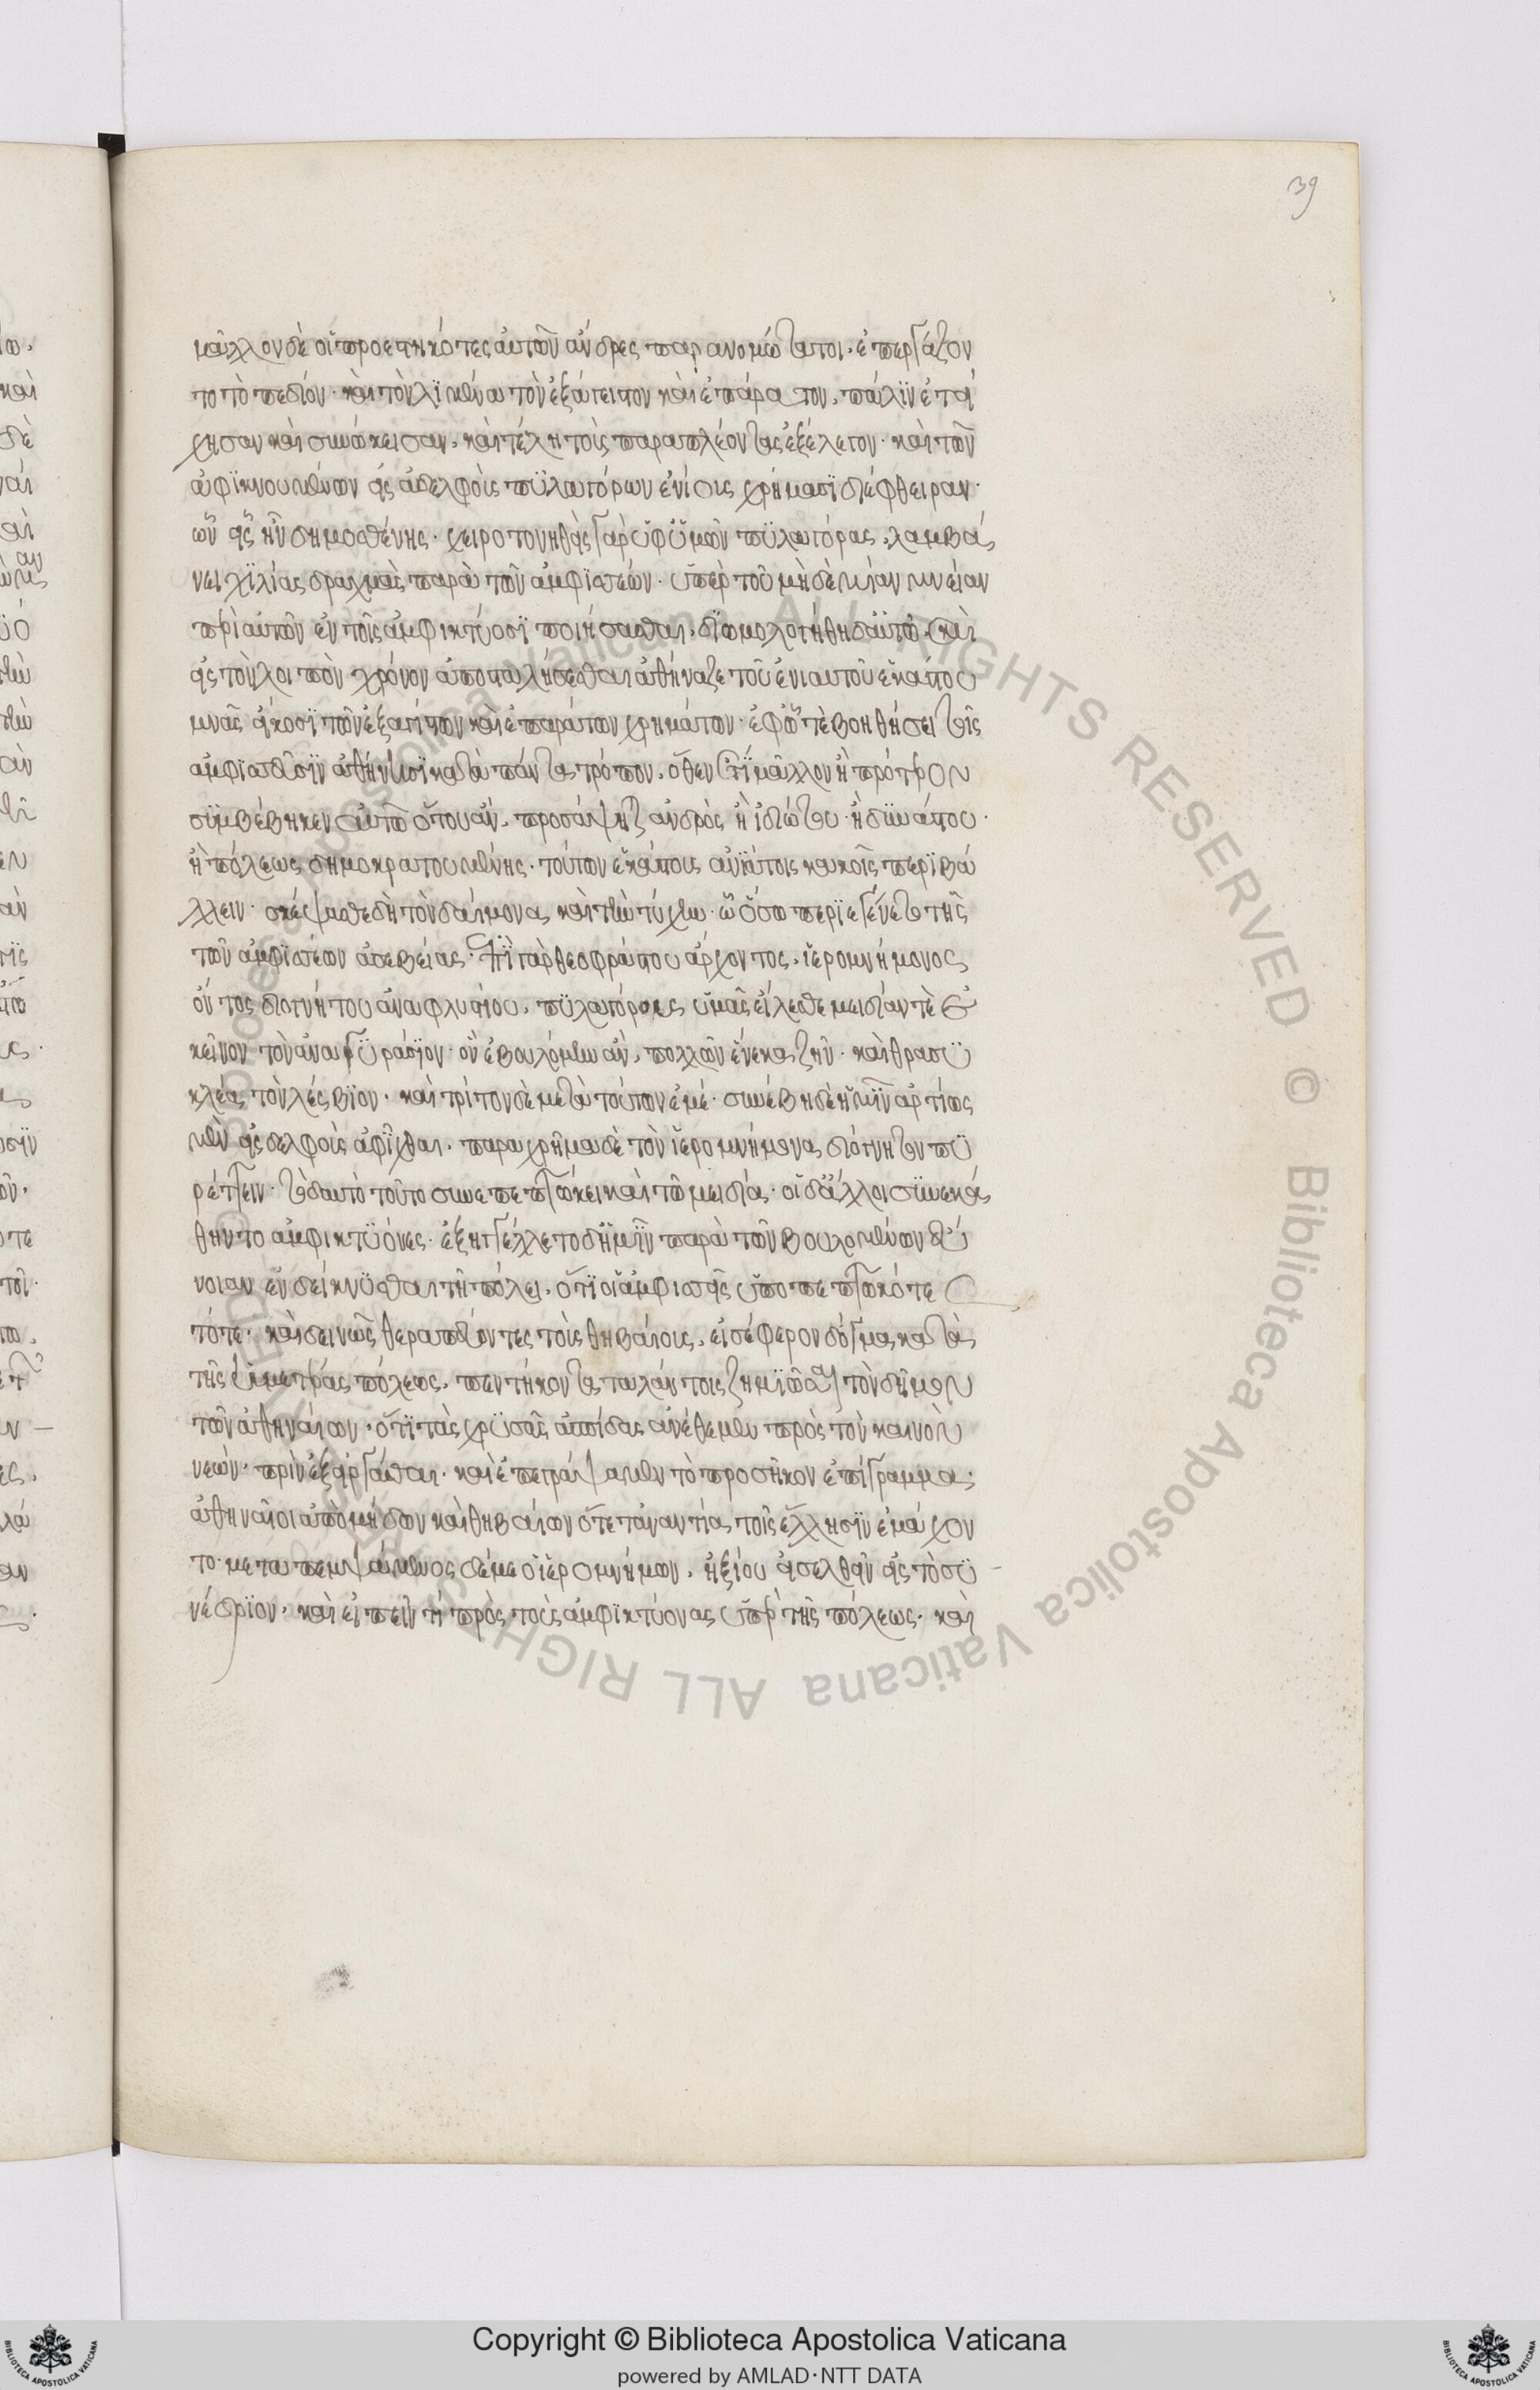 39
μᾶλλον δὲ οἱ προεστηκότες αὐτῶν ἄνδρες παρανομώτατοι. ἐπεργάζον
το τὸ πεδίον· καὶ τὸν λϊμένα τὸν ἐξάγιστον καὶ ἐπάρατον, πάλϊν ἐτεί
χησαν καὶ συνώκεισαν, καὶ τέλη τοὺς παραπλέοντας ἐξέλεγον· καὶ τῶν
ἀφϊκνουμένων εἰς δελφοὺς πϋλαγόρων ἐνίους χρήμασϊ διέφθειραν·
ὧν εἷς ἦν δημοσθένης· χειροτονηθεὶς γὰρ ὑφ' ὑμῶν πϋλαγόρας, λαμβά
νει χϊλίας δραχμὰς παρὰ τῶν ἀμφϊσσέων· ὑπὲρ τοῦ μηδεμίαν μνείαν
περὶ αὐτῶν ἐν τοῖς ἀμφικτύοσϊ ποιήσασθαι, διωμολογήθη δ' αὐτῶ καὶ
εἰς τὸν λοιπὸν χρόνον ἀποσταλήσεσθαι ἀθήναζε τοῦ ἐνιαυτοῦ ἑκάστου
μνᾶς εἴκοσϊ τῶν ἐξαγίστων καὶ ἐπαράτων χρημάτων· ἐφ' ὧ τε βοηθήσει τοῖς
ἀμφϊσσεῦσϊν ἀθήνησϊ κατὰ πάντα τρόπον, ὅθεν ἔτϊ μᾶλλον ἢ πρότερον
σϋμβέβηκεν αὐτῶ ὅτου ἂν, προσάψηται ἀνδρὸς ἢ ἰδιώτου· ἢ δυνάστου·
ἢ πόλεως δημοκρατουμένης· τούτων ἑκάστους ἀνϊάτοις κακοῖς περϊβά
λλειν· σκέψασθε δὴ τὸν δαίμονα, καὶ τὴν τύχην· ὧ ὅσω περϊεγένετο τῆς
τῶν ἀμφϊσσέων ἀσεβείας· ἐπῒ γὰρ θεοφράστου ἄρχοντος, ἱερομνήμονος
ὄντος διογνήτου ἀναφλυστίου, πϋλαγόρους ὑμεῖς εἵλεσθε μειδίαν τὲ ἐ
κεῖνον τὸν ἀναγϋράσϊον· ὃν ἐβουλόμην ἂν, πολλῶν ἕνεκα ζῆν· καὶ θρασϋ
κλέα τὸν λέσβϊον· καὶ τρίτον δὲ μετὰ τούτων ἐμέ· συνέβη δὲ ἡμῖν ἀρτίως
μὲν εἰς δελφοὺς ἀφῖχθαι, παραχρῆμα δὲ τὸν ἱερομνήμονα διόγνητον πϋ
ρέττειν· τὸ δ' αὐτὸ τοῦτο συνεπεπτώκει καὶ τῶ μειδία· οἱ δ' ἄλλοι σϋνεκά
θηντο ἀμφικτϋόνες· ἐξηγγέλλετο δ' ἡμῖν παρὰ τῶν βουλομένων εὔ
νοιαν ἐνδείκνϋσθαι τῆ πόλει, ὅτϊ οἱ ἀμφισσεῖς ὑποπεπτωκότε
τότε· καὶ δεινῶς θεραπεύοντες τοὺς θηβαίους, εἰσέφερον δόγμα κατὰ
τῆς ὑμετέρας πόλεως, πεντήκοντα ταλάντοις ζημϊῶσαι τὸν δῆμον
τῶν ἀθηναίων, ὅτϊ τὰς χρϋσᾶς ἀσπίδας ἀνέθεμεν πρὸς τὸν καινὸν
νεὼν· πρὶν ἐξείργασθαι· καὶ ἐπεγράψαμεν τὸ προσῆκον ἐπίγραμμα·
ἀθηναῖοι ἀπὸ μήδων καὶ θηβαίων ὅτε τἀναντία τοῖς ἕλλησϊν ἐμάχον
το· μεταπεμψάμενος δέ με ὁ ἱερομνήμων, ἠξίου εἰσελθεῖν εἰς τὸ σϋ
νέδρϊον· καὶ εἰπεῖν τι πρὸς τοὺς ἀμφϊκτύονας ὑπὲρ τῆς πόλεως· καὶ
Copyright © Biblioteca Apostolica Vaticana
powered by AMLAD·NTT DATA